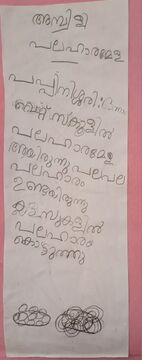 അമ്പിളി
പലഹാരമേള
പാപ്പിനിശ്ശേരി:
വെസ്റ്റ് സ്കൂളിൽ
പലഹാരമേള
ആയിരുന്നു പലപല
പലഹാരം
ഉണ്ടയിരുന്നു
ക്ലാസുകളിൽ
പലഹാരം
കൊടുത്തു